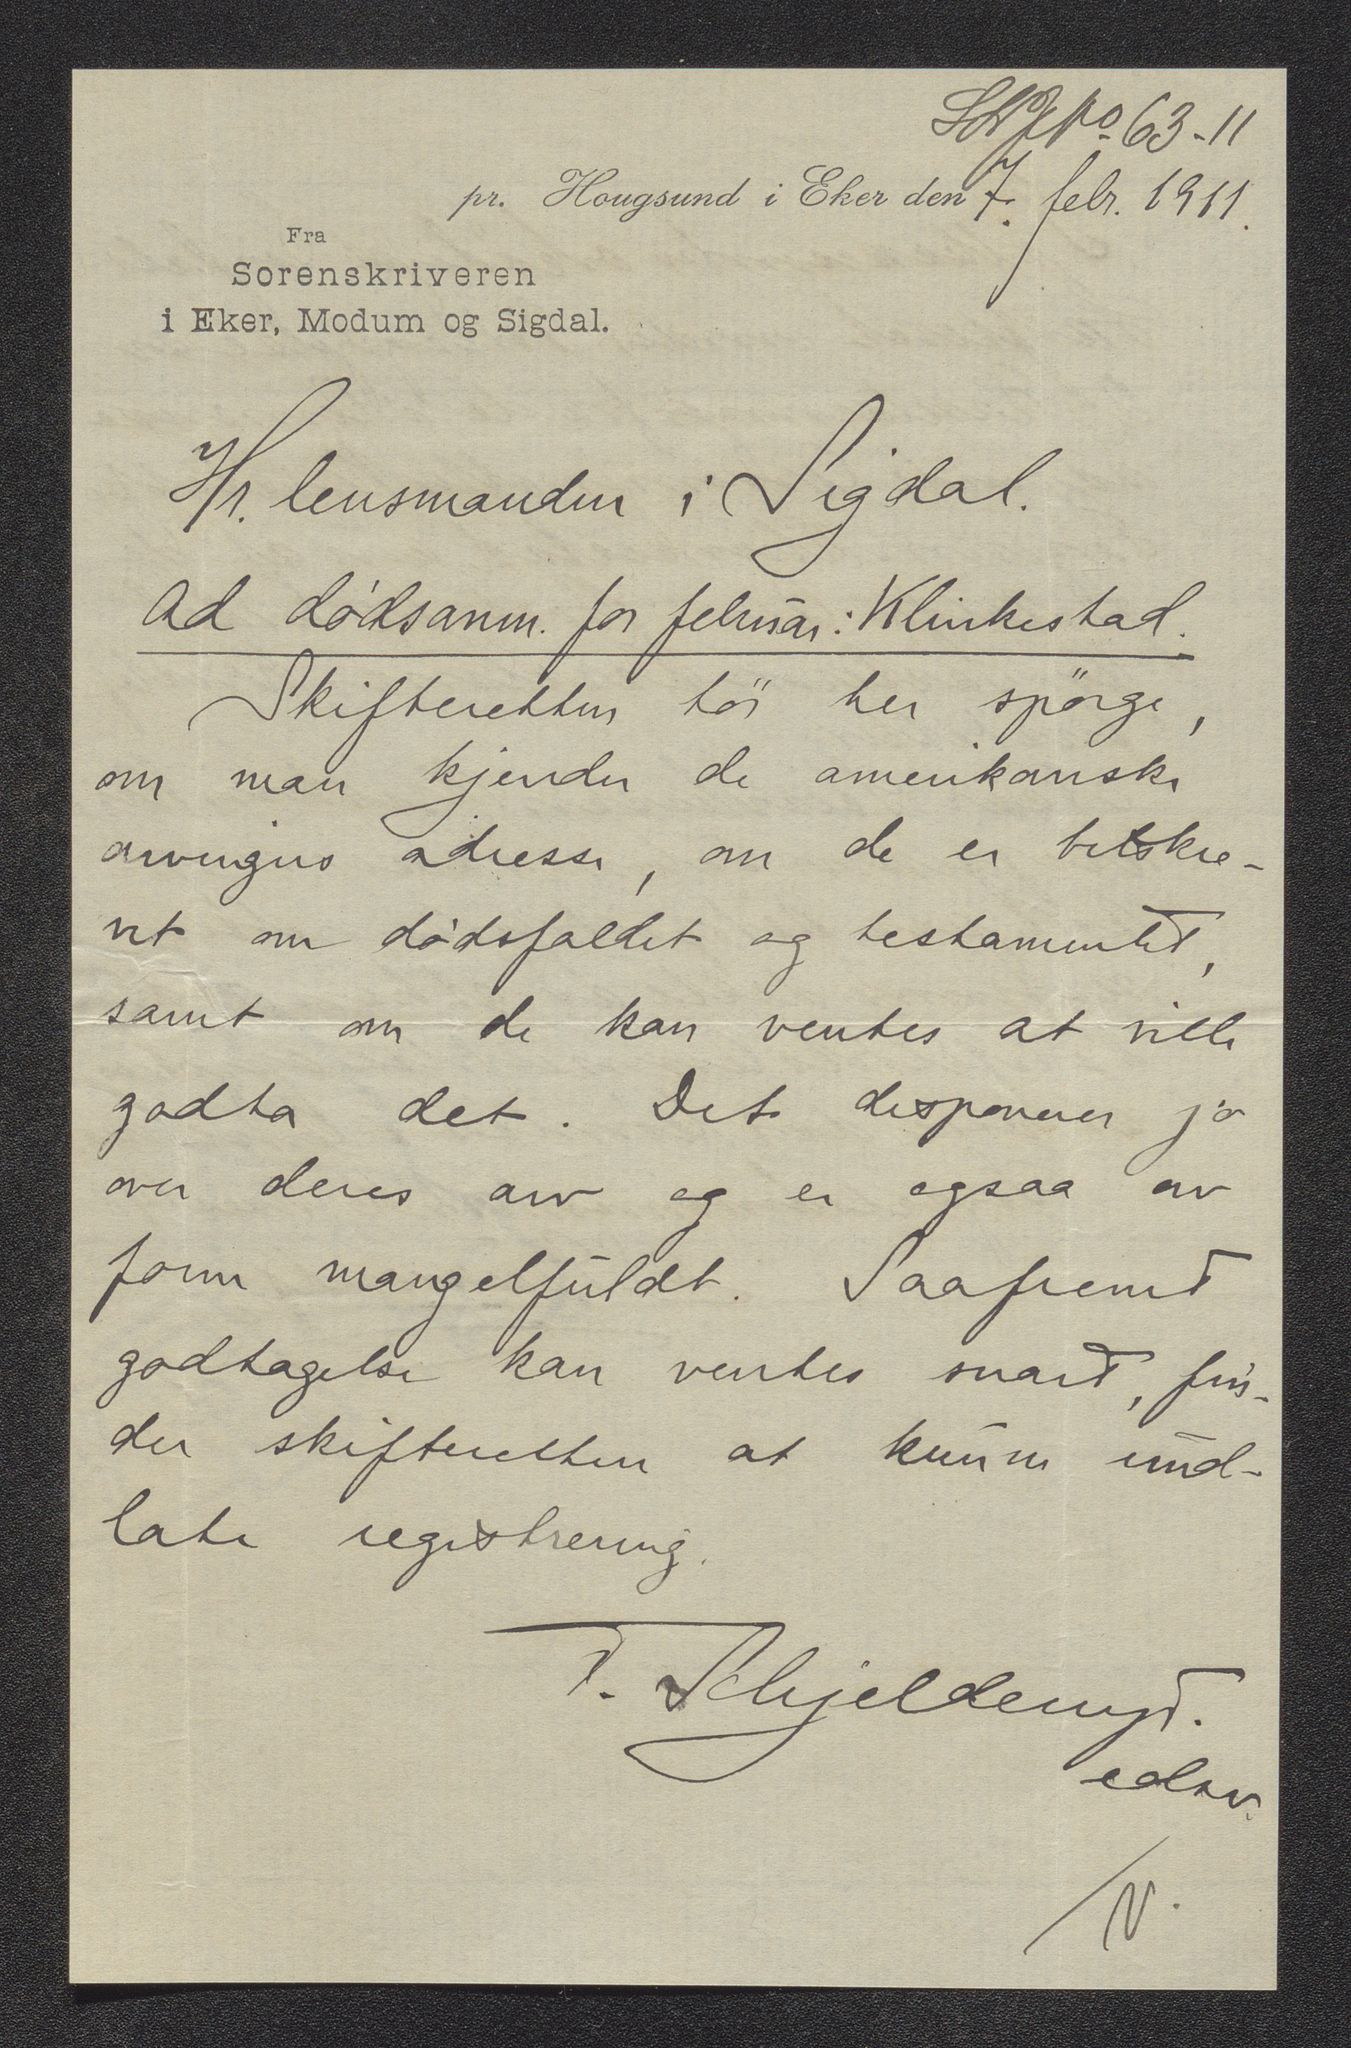 No 63-11
pr. Hougsund i Eker den 7. febr. 1911.
Fra
Sorenskriveren
i Eker, Modum og Sigdal.
Hr. lensmanden i Sigdal.
Ad dødsanm. for februar: Klinkestad.
Skifteretten tör her spörge,
om man kjender de amerikanske
arvingers adresse, om de er tilskre-
vet om dødsfaldet og testamentet,
samt om de kan ventes at ville
godta det. Det disponerer jo
over deres arv og er ogsaa av
form mangelfuldt. Saafremt
godtagelse kan ventes snart, fin-
der skifteretten at kunne und-
late registrering.
T. Schjelderup.
edsv.
N.